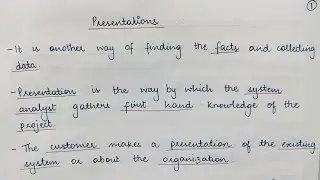 1
Presentations
- It is another way of finding the facts and collecting
data.
- Presentation is the way by which the system
analyst gathers first hand knowledge of the
project.
- The customer makes a presentation of the existing
system or about the organization.